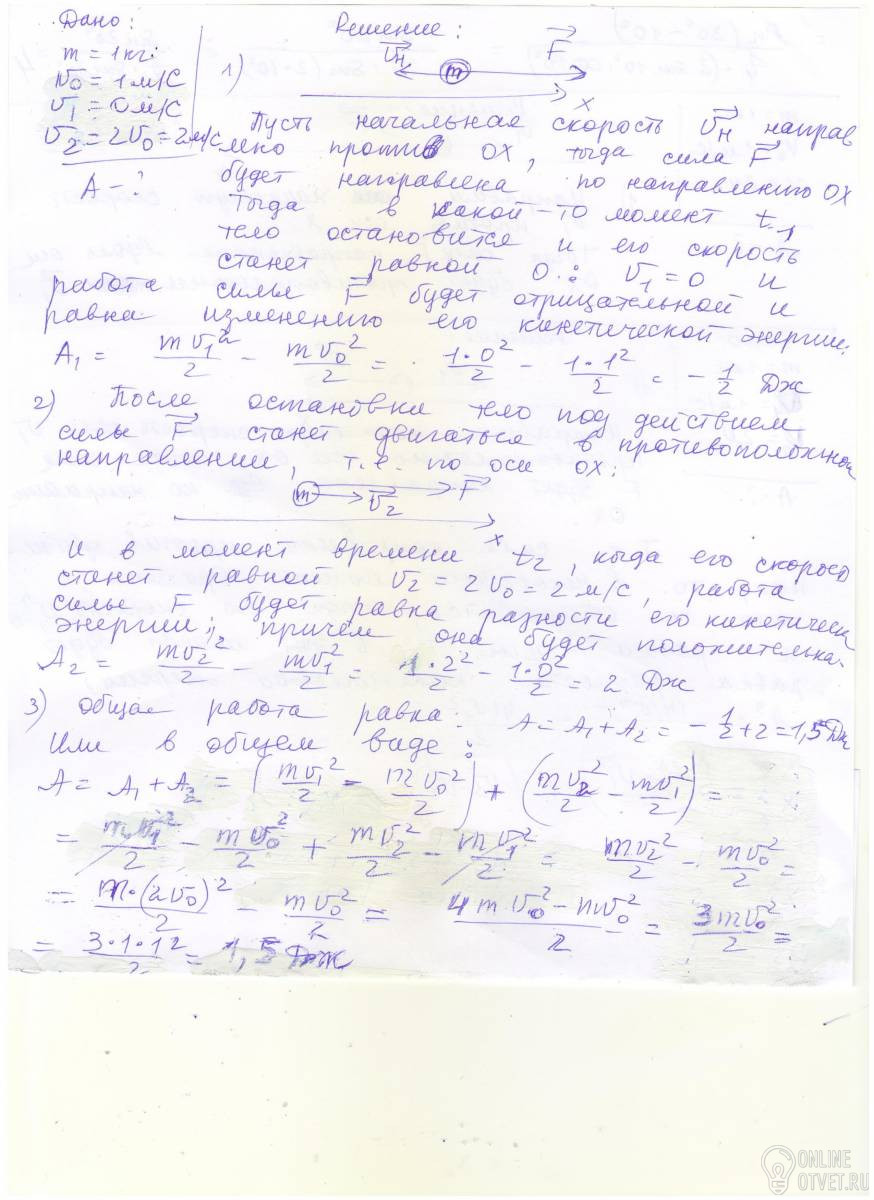 Дано:
m = 1 кг.
v₀ = 1 м/с
v₁ = 0 м/с
v₂ = 2v₀ = 2 м/с
A - ?
Решение:
1) vн m F
x
Пусть начальная скорость vн направ
лено против OX, тогда сила F
будет направлена по направлению OX
Тогда в какой-то момент t₁
тело остановится и его скорость
станет равной 0: v₁ = 0 и
работа силы F будет отрицательной и
равна изменению его кинетической энергии:
A₁ = mv₁²/2 - mv₀²/2 = 1·0²/2 - 1·1²/2 = -1/2 Дж
2) После остановки тело под действием
силы F станет двигаться в противоположном
направлении, т.е. по оси OX:
m v₂ F
x
И в момент времени t₂, когда его скорость
станет равной v₂ = 2v₀ = 2 м/с, работа
силы F будет равна разности его кинетическ
энергии; причем она будет положительна.
A₂ = mv₂²/2 - mv₁²/2 = 1·2²/2 - 1·0²/2 = 2 Дж
3) Общая работа равна A = A₁ + A₂ = -1/2 + 2 = 1,5 Дж
Или в общем виде:
A = A₁ + A₂ = (mv₁²/2 - mv₀²/2) + (mv₂²/2 - mv₁²/2) =
= mv₁²/2 - mv₀²/2 + mv₂²/2 - mv₁²/2 = mv₂²/2 - mv₀²/2 =
= m·(2v₀)²/2 - mv₀²/2 = 4mv₀² - mv₀²/2 = 3mv₀²/2 =
= 3·1·1²/2 = 1,5 Дж
ONLINE
OTVET.RU